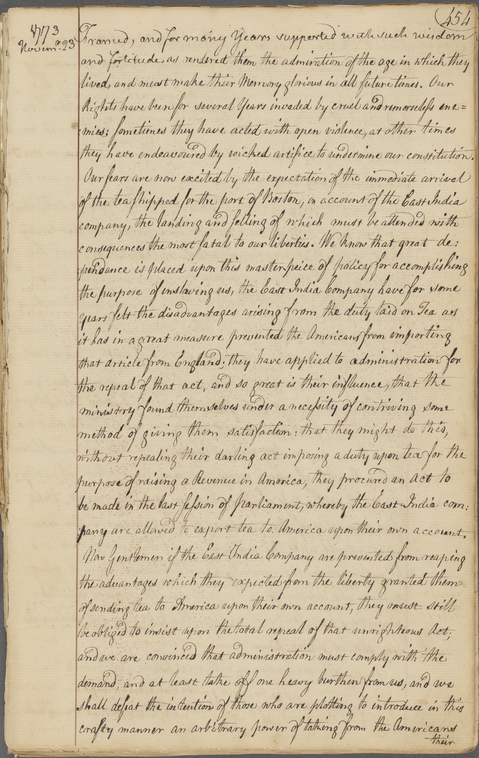 454
1773
Novem. 23
Framed, and for many Years supported with such wisdom
and fortitude, as rendered them the admiration of the age in which they
lived, and must make their Memory glorious in all future times. Our
Rights have been for several Years invaded by cruel and remorseless ene=
mies: sometimes they have acted with open violence, at other times
they have endeavoured by wicked artifice to undermine our constitution.
Our fears are now excited by the expectation of the immediate arrival
of the tea shipped for the port of Boston, on account of the East India
company, the landing and selling of which must be attended with
consequences the most fatal to our liberties. We know that great de:
pendance is placed upon this masterpeice of policy for accomplishing
the purpose of inslaving us, the East India Company have for some
years felt the disadvantages arising from the duty laid on Tea as
it has in a great measure prevented the Americans from importing
that article from England; they have applied to administration for
the repeal of that act, and so great is their influence, that the
ministry found themselves under a necessity of contriving some
method of giving them satisfaction: that they might do this,
without repealing their darling act imposing a duty upon tea for the
purpose of raising a Revenue in America, they procured an Act to
be made in the last session of Parliament, whereby the East India com:
pany are allowed to export tea to America upon their own account.
Now Gentlemen if the East India Company are prevented from reaping
the advantages which they expected from the liberty granted them
of sending tea to America upon their own account, they must still
be obliged to insist upon the total repeal of that unrighteous Act;
and we are convinced that administration must comply with the
demand; and at least take off one heavy burthen from us, and we
shall defeat the intention of those who are plotting to introduce in this
crafty manner an arbitrary power of taking from the Americans
their